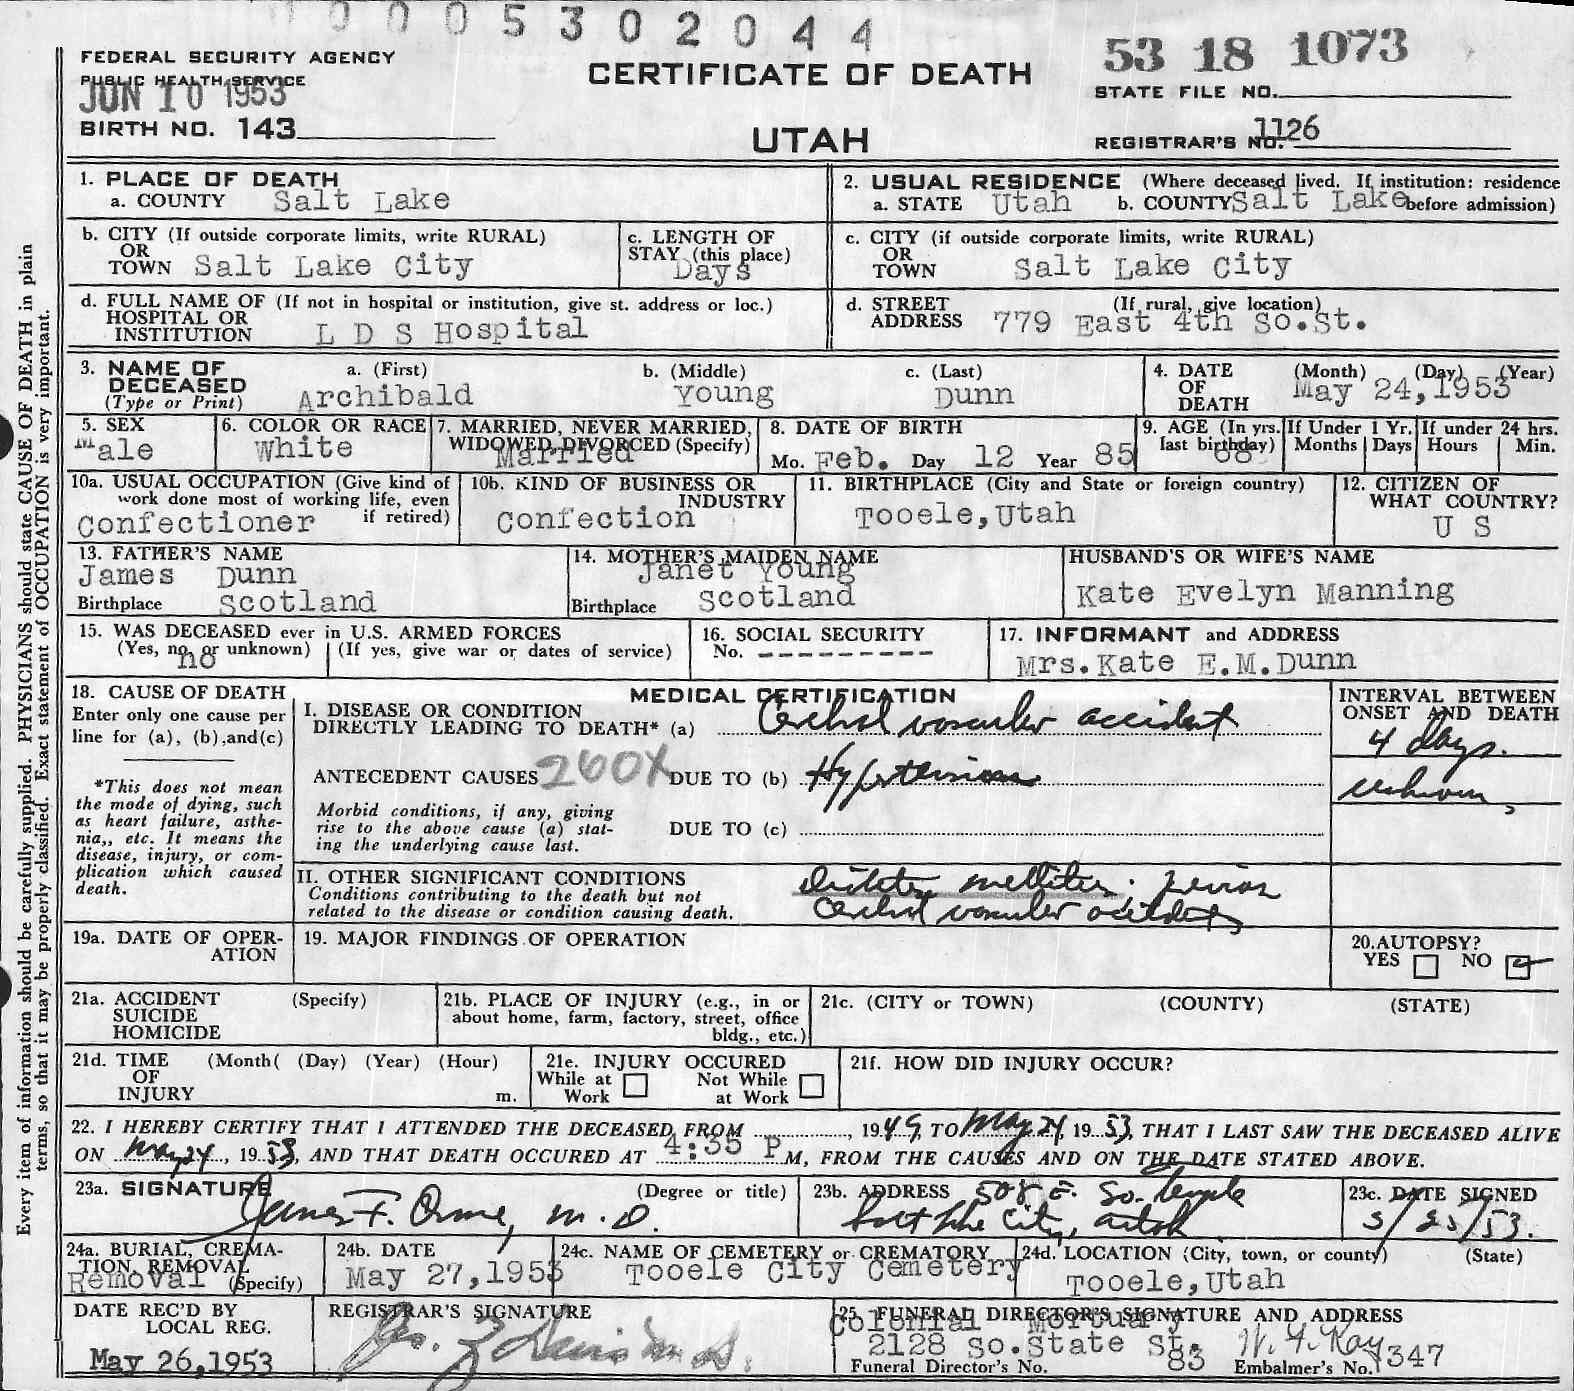 0005302044
FEDERAL SECURITY AGENCY
PUBLIC HEALTH SERVICE
JUN 10 1953
BIRTH NO. 143
CERTIFICATE OF DEATH
UTAH
53 18 1073
STATE FILE NO.
REGISTRAR'S NO. 1126
Every item of information should be carefully supplied. PHYSICIANS should state CAUSE OF DEATH in plain
terms, so that it may be properly classified. Exact statement of OCCUPATION is very important.
1. PLACE OF DEATH
a. COUNTY Salt Lake
2. USUAL RESIDENCE (Where deceased lived. If institution: residence
a. STATE Utah b. COUNTY Salt Lake before admission)
b. CITY (If outside corporate limits, write RURAL)
OR
TOWN Salt Lake City
c. LENGTH OF
STAY (this place)
Days
c. CITY (if outside corporate limits, write RURAL)
OR
TOWN Salt Lake City
d. FULL NAME OF (If not in hospital or institution, give st. address or loc.)
HOSPITAL OR
INSTITUTION L D S Hospital
d. STREET (If rural, give location)
ADDRESS 779 East 4th So.St.
3. NAME OF a. (First) b. (Middle) c. (Last)
DECEASED
(Type or Print) Archibald Young Dunn
4. DATE (Month) (Day) (Year)
OF
DEATH May 24,1953
5. SEX
Male
6. COLOR OR RACE
White
7. MARRIED, NEVER MARRIED,
WIDOWED, DIVORCED (Specify)
Married
8. DATE OF BIRTH
Mo. Feb. Day 12 Year 85
9. AGE (In yrs.
last birthday)
68
If Under 1 Yr.
Months Days
If under 24 hrs.
Hours Min.
10a. USUAL OCCUPATION (Give kind of
work done most of working life, even
if retired)
Confectioner
10b. KIND OF BUSINESS OR
INDUSTRY
Confection
11. BIRTHPLACE (City and State or foreign country)
Tooele,Utah
12. CITIZEN OF
WHAT COUNTRY?
U S
13. FATHER'S NAME
James Dunn
Birthplace Scotland
14. MOTHER'S MAIDEN NAME
Janet Young
Birthplace Scotland
HUSBAND'S OR WIFE'S NAME
Kate Evelyn Manning
15. WAS DECEASED ever in U.S. ARMED FORCES
(Yes, no, or unknown) (If yes, give war or dates of service)
no
16. SOCIAL SECURITY
No. ---------
17. INFORMANT and ADDRESS
Mrs.Kate E.M.Dunn
18. CAUSE OF DEATH
Enter only one cause per
line for (a), (b),and(c)
*This does not mean
the mode of dying, such
as heart failure, asthe-
nia,, etc. It means the
disease, injury, or com-
plication which caused
death.
MEDICAL CERTIFICATION
I. DISEASE OR CONDITION
DIRECTLY LEADING TO DEATH* (a) Cerebral vascular accident
ANTECEDENT CAUSES 260X DUE TO (b) Hypertension
Morbid conditions, if any, giving
rise to the above cause (a) stat-
ing the underlying cause last.
DUE TO (c)
INTERVAL BETWEEN
ONSET AND DEATH
4 days.
unknown,
II. OTHER SIGNIFICANT CONDITIONS
Conditions contributing to the death but not
related to the disease or condition causing death.
Diabetes mellitus.
Cerebral vascular accidents
19a. DATE OF OPER-
ATION
19. MAJOR FINDINGS OF OPERATION
20.AUTOPSY?
YES NO
21a. ACCIDENT (Specify)
SUICIDE
HOMICIDE
21b. PLACE OF INJURY (e.g., in or
about home, farm, factory, street, office
bldg., etc.)
21c. (CITY or TOWN) (COUNTY) (STATE)
21d. TIME (Month( (Day) (Year) (Hour)
OF
INJURY m.
21e. INJURY OCCURED
While at Not While
Work at Work
21f. HOW DID INJURY OCCUR?
22. I HEREBY CERTIFY THAT I ATTENDED THE DECEASED FROM , 1949, TO May 24, 1953, THAT I LAST SAW THE DECEASED ALIVE
ON May 24, 1953, AND THAT DEATH OCCURED AT 4:35 P M, FROM THE CAUSES AND ON THE DATE STATED ABOVE.
23a. SIGNATURE (Degree or title)
James F. Orme, M.D.
23b. ADDRESS 508 E. So. Temple
Salt Lake City, Utah
23c. DATE SIGNED
5/25/53.
24a. BURIAL, CREMA-
TION, REMOVAL
Removal (Specify)
24b. DATE
May 27,1953
24c. NAME OF CEMETERY or CREMATORY
Tooele City Cemetery
24d. LOCATION (City, town, or county) (State)
Tooele,Utah
DATE REC'D BY
LOCAL REG.
May 26,1953
REGISTRAR'S SIGNATURE
25. FUNERAL DIRECTOR'S SIGNATURE AND ADDRESS
Colonial Mortuary
2128 So.State St.
Funeral Director's No. 83 Embalmer's No. 1347